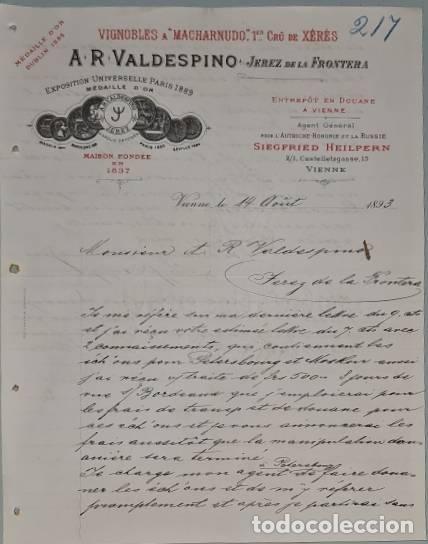 MÉDAILLE D'OR
DUBLIN 1892
VIGNOBLES A "MACHARNUDO". 1ER CRÛ DE XÉRÈS
217
A. R. VALDESPINO. JEREZ DE LA FRONTERA
EXPOSITION UNIVERSELLE PARIS 1889
MÉDAILLE D'OR
A. R. VALDESPINO
JEREZ
MAISON FONDÉE
EN
1837
ENTREPÔT EN DOUANE
A VIENNE
Agent Général
POUR L'AUTRICHE-HONGRIE ET LA RUSSIE
SIEGFRIED HEILPERN
2/1, Castellezgasse, 15
VIENNE
Vienne le 14 Août 1893
Monsieur A. R. Valdespino
Jerez de la Frontera
Je me réfère sur ma dernière lettre du 9. ct
et j'ai reçu votre estimée lettre du 7. ct avec
2 connaissements, qui contiennent les
éch'ons pour Petersbourg et Moskou aussi
j'ai reçu v/traite de frs 500.- 8 jours de
vue s/ Bordeaux que j'emploierai pour
les frais de transp. et de douane pour
ces éch'ons et je vous annoncerai les
frais aussitôt que la manipulation dou-
anière sera terminé
à Petersbourg
Je charge mon agent de faire doua-
ner les éch'ons et de m'y référer
promptement et après je partirai sans
todocoleccion.net